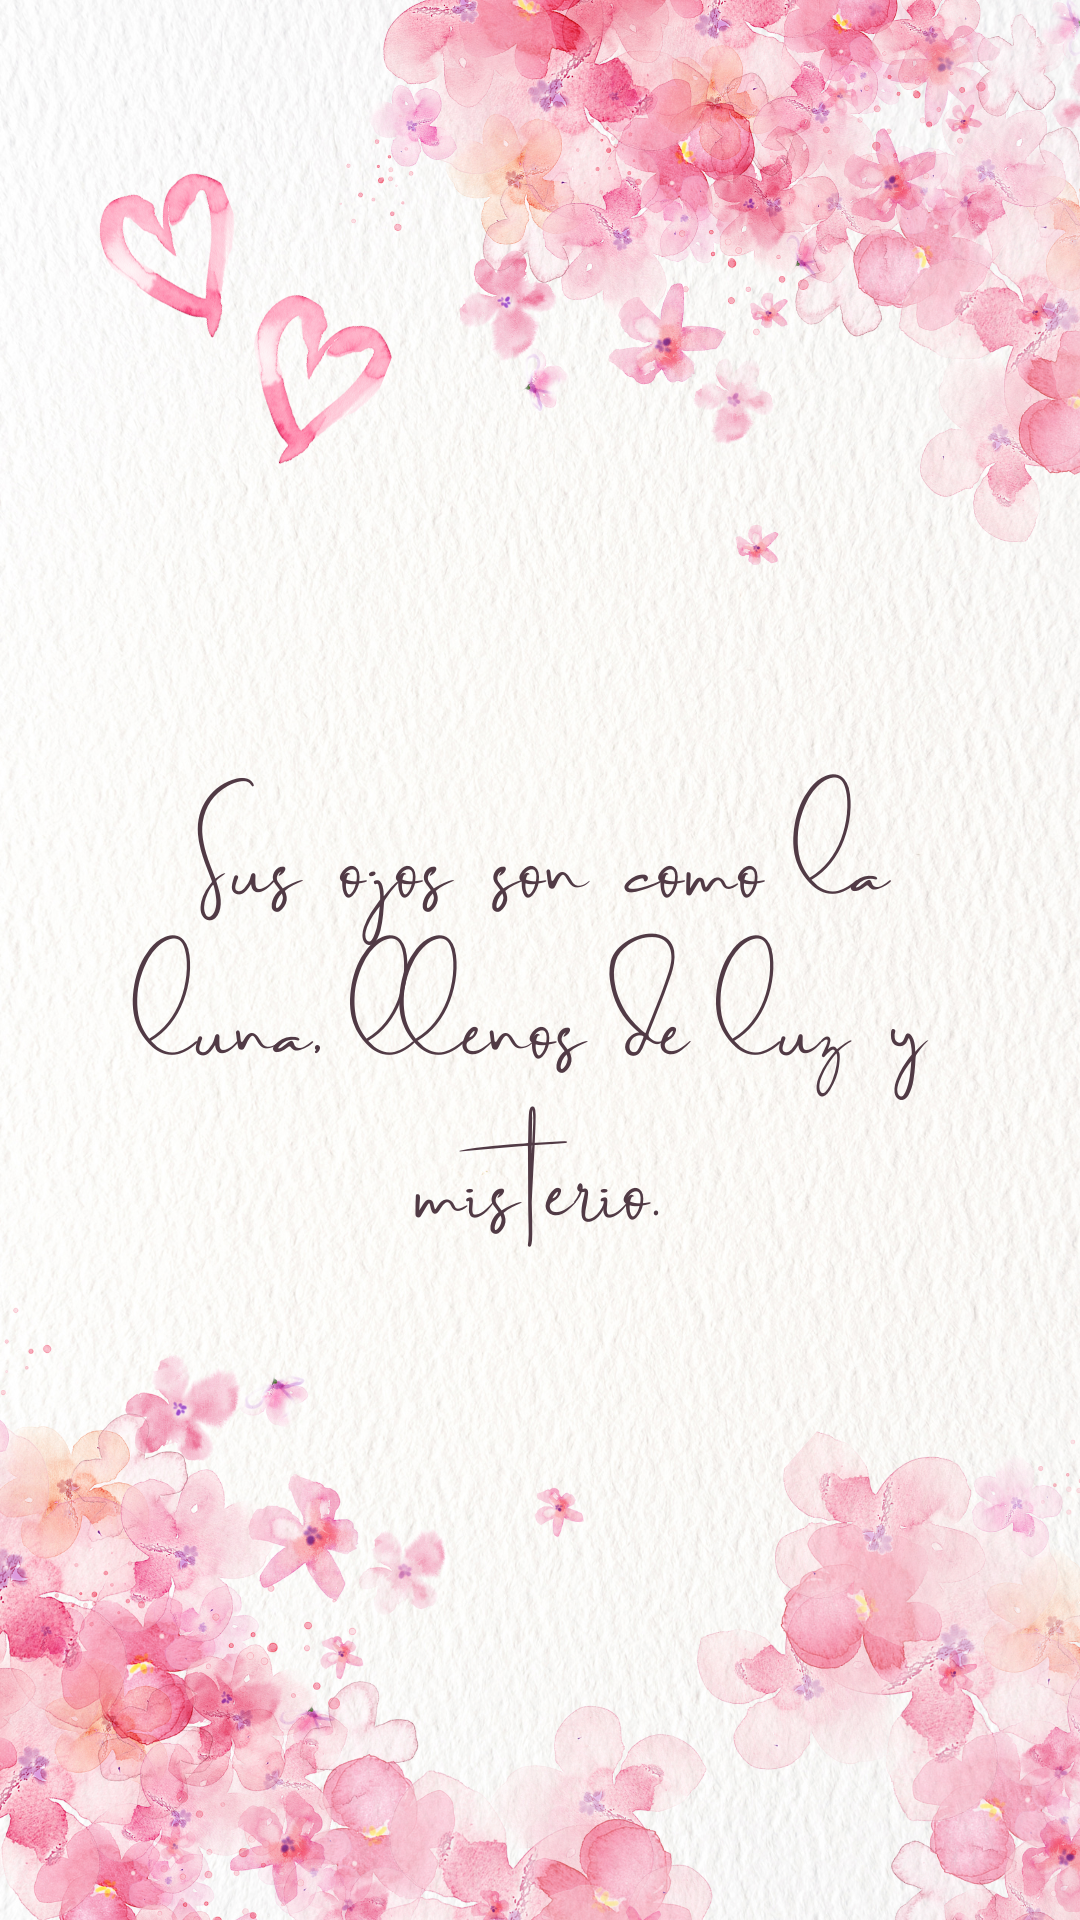 Sus ojos son como la
luna, llenos de luz y
misterio.